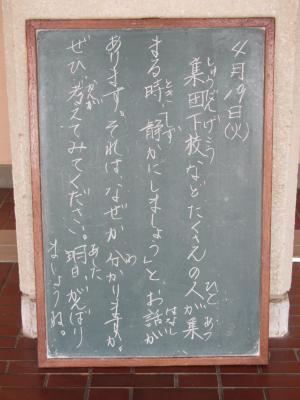 4月19日(火)
しゅうだんげこう ひと あつ
集団下校などたくさんの人が集
とき しず はなし
まる時「静かにしましょう」と、お話が
わ
あります。それは、なぜか分かりますか。
かんが あした
ぜひ考えてみてください。明日、がんばり
ましょうね。